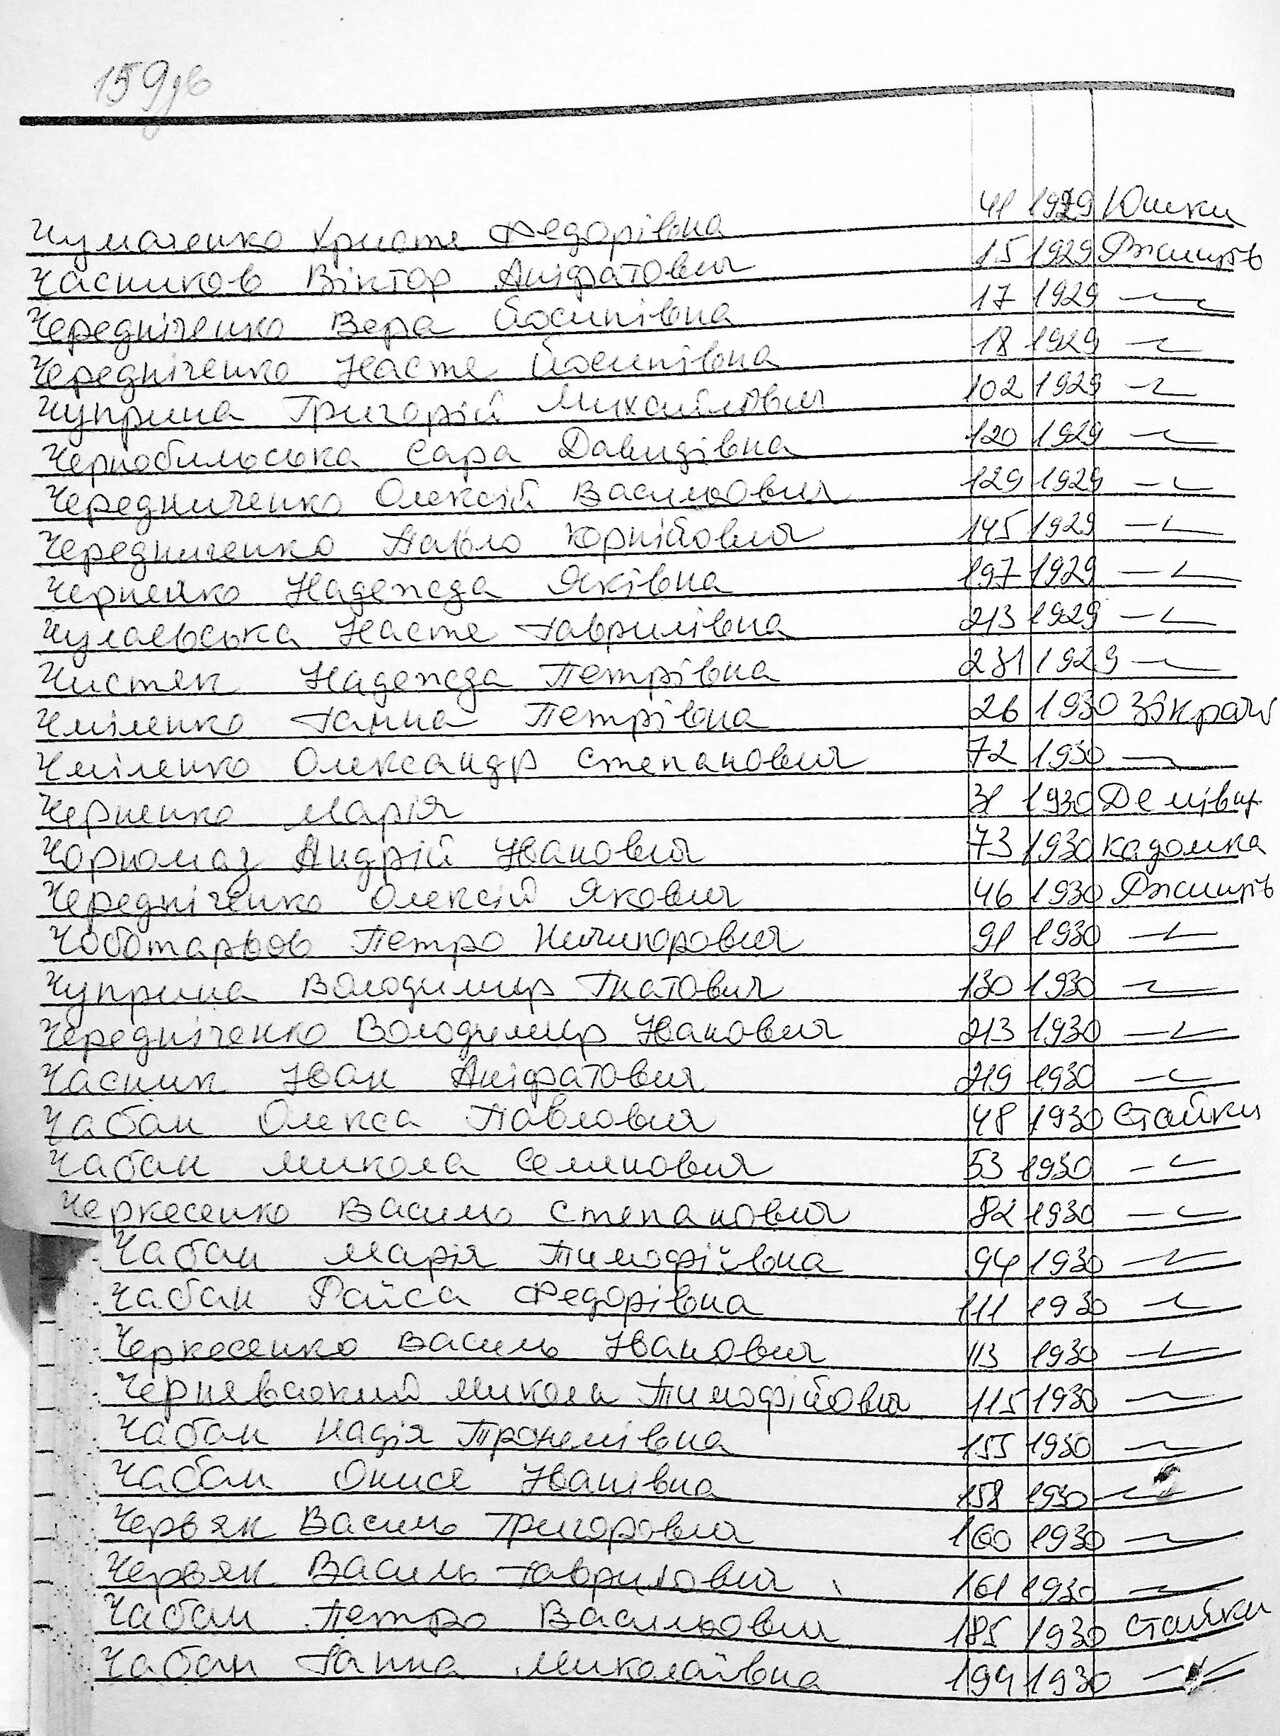 159зв
Чумаченко Христя Федорівна 41 1929 Юшки
Часников Віктор Аніфатович 15 1929 Ржищів
Чередніченко Вера Йосипівна 17 1929 —〃—
Чередніченко Настя Йосипівна 18 1929 —〃—
Чуприна Григорій Михайлович 102 1929 —〃—
Чернобильська Сара Давидівна 120 1929 —〃—
Чередниченко Олексій Васильович 129 1929 —〃—
Чередниченко Павло Корнійович 145 1929 —〃—
Черненко Надежда Яківна 197 1929 —〃—
Настя Гаврилівна 213 1929 —〃—
Чистяк Надежда Петрівна 231 1929 —〃—
Чміленко Ганна Петрівна 26 1930
Чміленко Олександр Степанович 72 1930 —〃—
Черненко Марія 31 1930
Чорномаз Андрій Іванович 73 1930 Кадомка
Чередніченко Олексій Якович 46 1930 Ржищів
Чоботарьов Петро Ничипорович 91 1930 —〃—
Чуприна Володимир Гнатович 130 1930 —〃—
Чередніченко Володимир Іванович 213 1930 —〃—
Часник Іван Аніфатович 219 1930 —〃—
Чабан Олекса Павлович 48 1930 Стайки
Чабан Микола Семенович 53 1930 —〃—
Черкесенко Василь Степанович 82 1930 —〃—
Чабан Марія Тимофіївна 94 1930 —〃—
Чабан Раїса Федорівна 111 1930 —〃—
Черкесенко Василь Іванович 113 1930 —〃—
Чернявський Микола Тимофійович 115 1930 —〃—
Чабан Надія 155 1930 —〃—
Чабан Онися Іванівна 158 1930 —〃—
Червяк Василь Григорович 160 1930 —〃—
Червяк Василь Гаврилович 161 1930 —〃—
Чабан Петро Васильович 185 1930 Стайки
Чабан Ганна Миколаївна 194 1930 —〃—